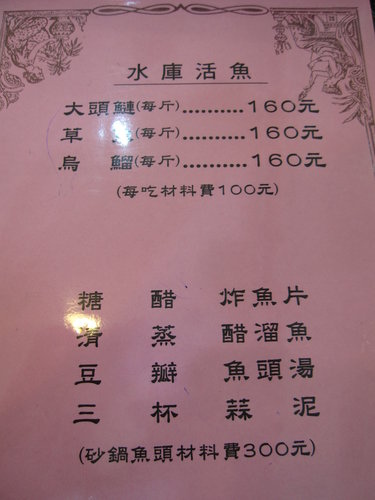 水庫活魚
大頭鰱(每斤)..........160元
草 (每斤)............160元
烏鰡(每斤)...........160元
(每吃材料費100元)
糖醋 炸魚片
清蒸 醋溜魚
豆瓣 魚頭湯
三杯 蒜泥
(砂鍋魚頭材料費300元)